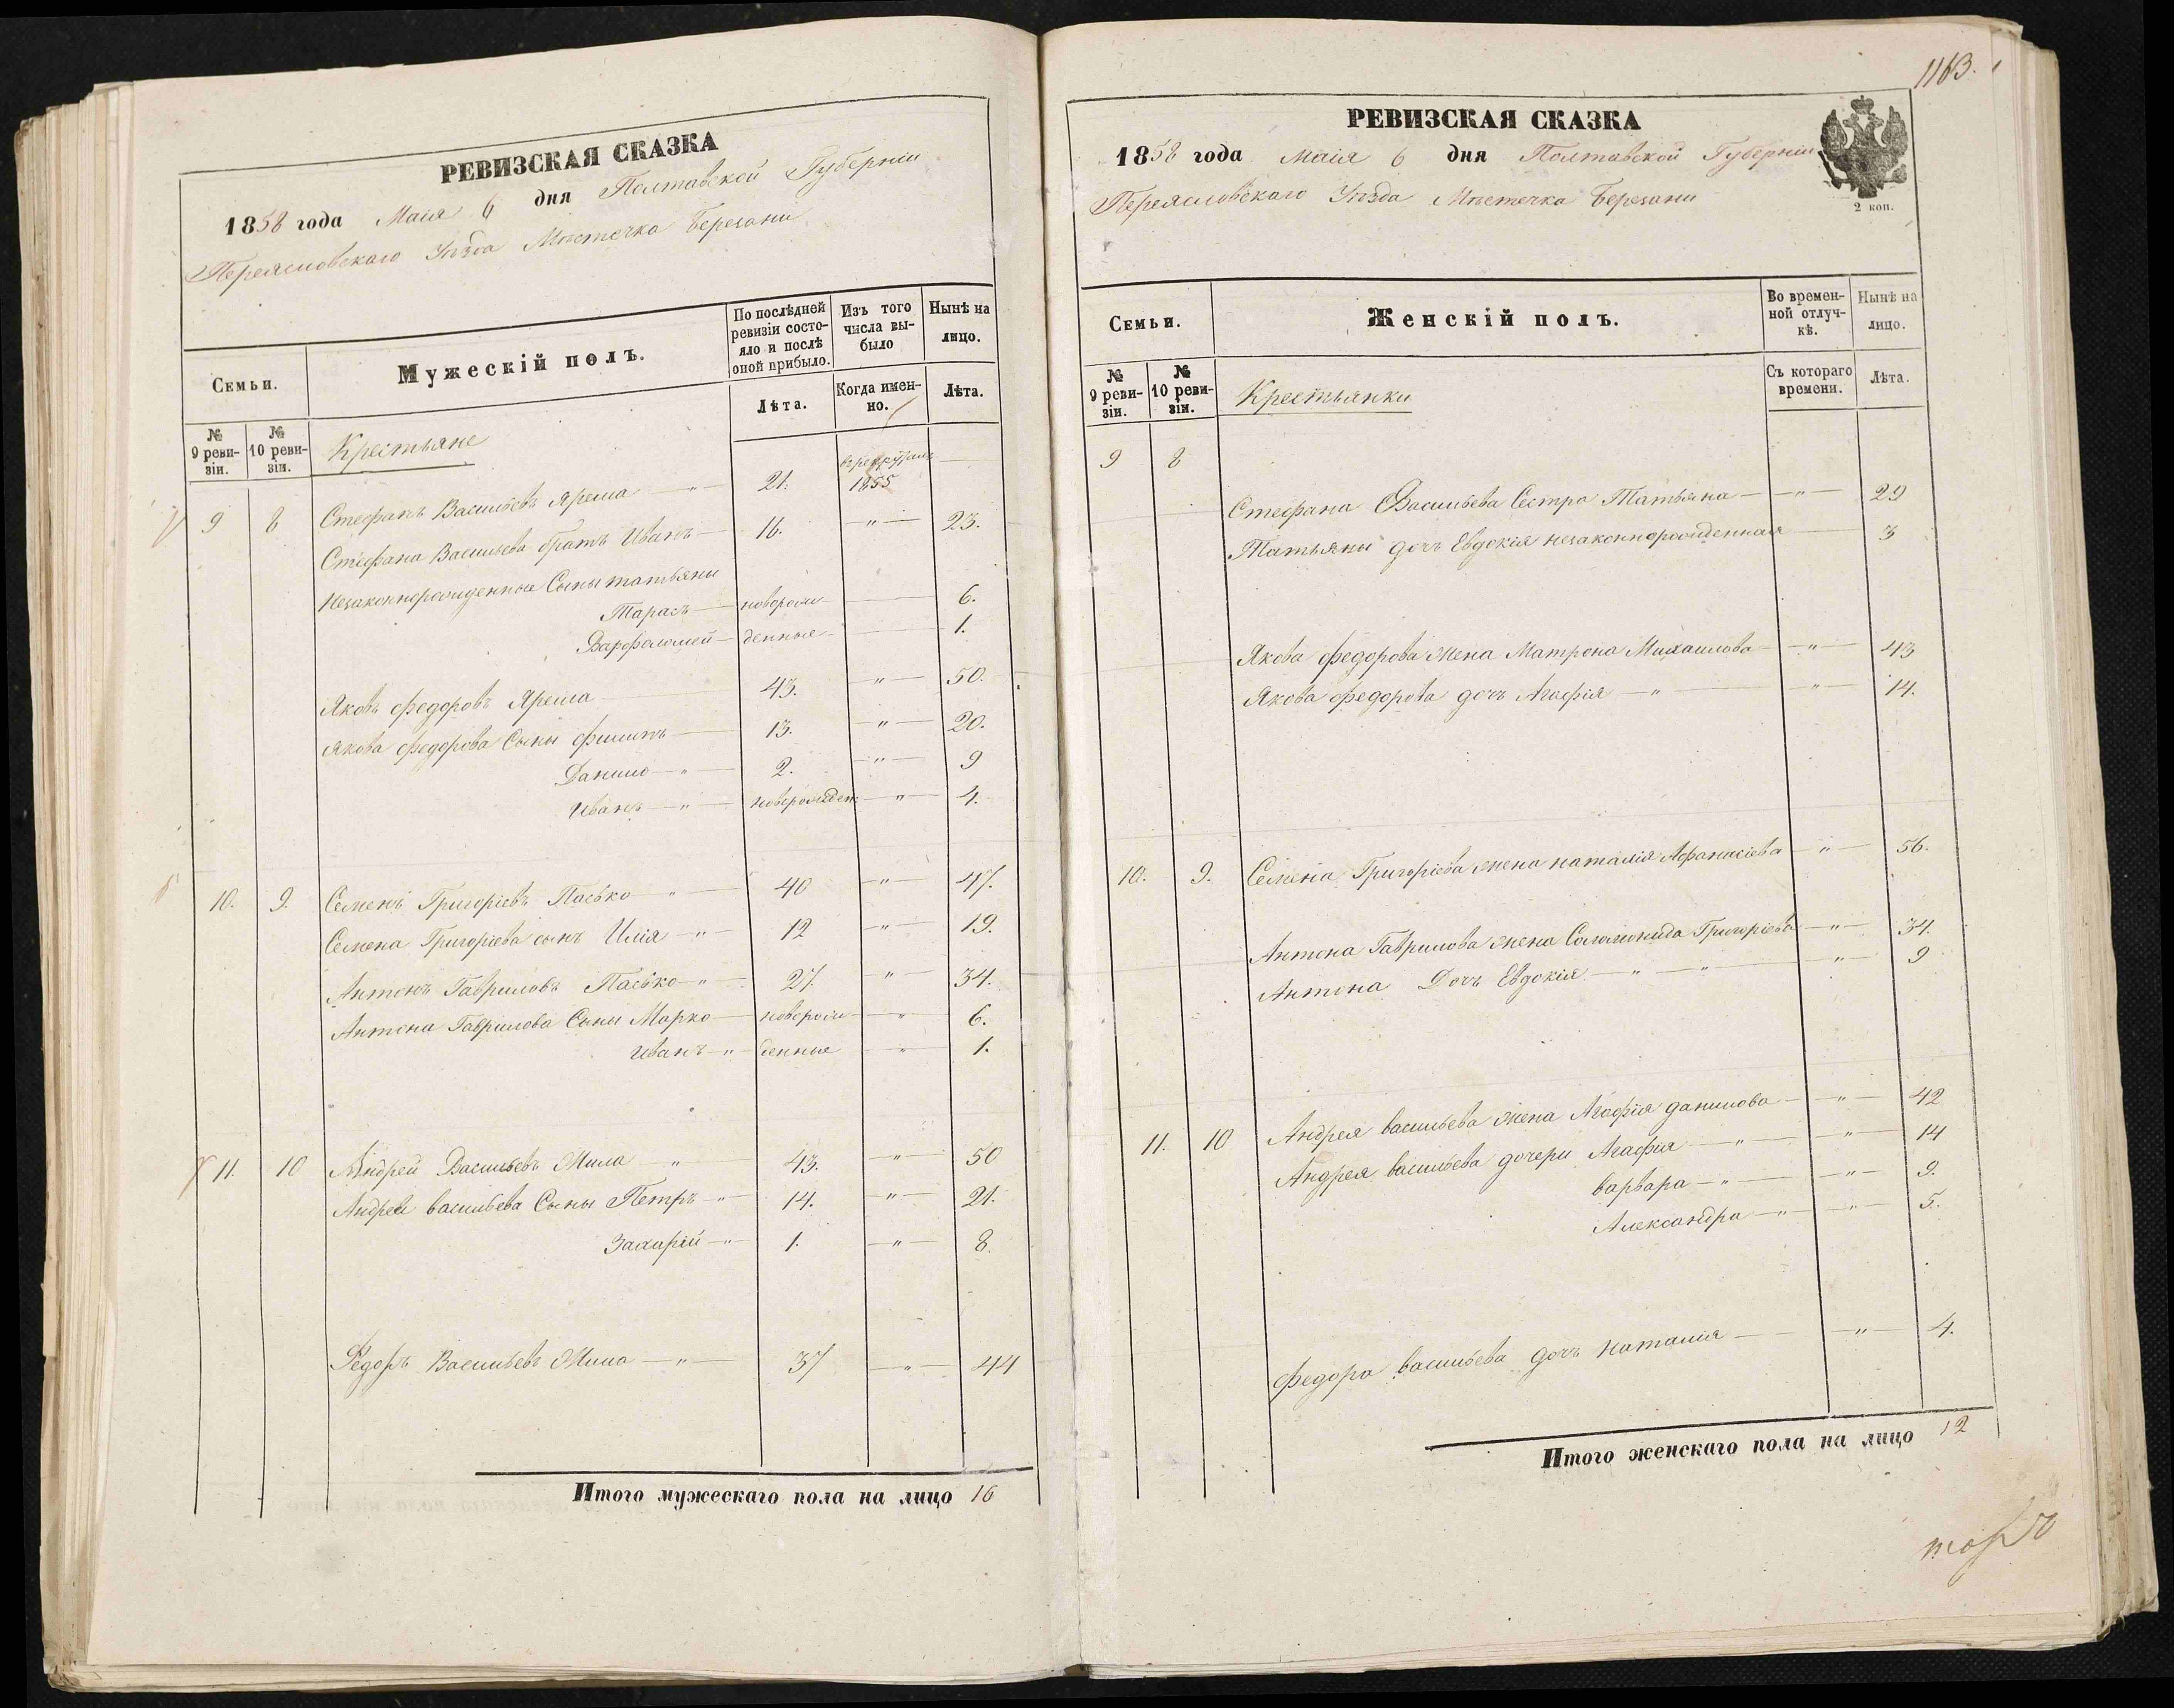 РЕВИЗСКАЯ СКАЗКА
1858 года Маія 6 дня Полтавской Губерніи
Переясловскаго Уѣзда Мѣстечка Березани
Семьи.
Мужескій полъ.
По послѣдней ревизіи состояло и послѣ оной прибыло.
Изъ того числа выбыло
Нынѣ на лицо.
№ 9 ревизіи.
№ 10 ревизіи.
Крестьяне
Лѣта.
Когда именно.
Лѣта.
9 8 Стефанъ Васильевъ Ярема — " — 21. в рекруты 1855 —
Стефана Васильева братъ Иванъ — 16. — " — 23.
Незаконнорожденные Сыны татьяны
Тарасъ — новорож- — 6.
Варфоломей — денные — 1.
Яковъ федоровъ Ярема 43. — " — 50.
Якова федорова Сыны филипъ — 13. — " — 20.
Данило — " — 2. — " — 9
Иванъ — " — новорожден — " — 4.
10. 9. Семенъ Григоріевъ Пасько " — 40 — " — 47.
Семена Григоріева сынъ Илія — " — 12 — " — 19.
Антонъ Гавриловъ Пасько — " — 27. " — 34.
Антона Гаврилова Сыны Марко — новорож- — " — 6.
Иванъ — " — денные — " — 1.
11. 10 Андрей Васильевъ Мила — " — 43. — " — 50
Андрея васильева Сыны Петръ — " — 14. — " — 21.
Захарій — " — 1. — " — 8.
Федоръ Васильевъ Мила — " — 37 — " — 44
Итого мужескаго пола на лицо 16
1163.
РЕВИЗСКАЯ СКАЗКА
1858 года Маія 6 дня Полтавской Губерніи
Переясловскаго Уѣзда Мѣстечка Березани
2 коп.
Семьи.
Женскій полъ.
Во временной отлучкѣ.
Нынѣ на лицо.
№ 9 ревизіи.
№ 10 ревизіи.
Крестьянки
Съ котораго времени.
Лѣта.
9 8
Стефана Васильева Сестра Татьяна — " — 29
Татьяны дочь Евдокія незаконнорожденная — 3
Якова федорова жена Матрона Михаилова — " — 43
Якова федорова дочь Агафія — " — " — 14.
10. 9. Семена Григоріева жена наталія Афанасіева — " — 56.
Антона Гаврилова жена Соломонида Григоріева — " — 34.
Антона Дочь Евдокія — " — " — " — 9
11. 10 Андрея васильева жена Агафія данилова — " — 42
Андрея васильева дочери Агафія — " — " — 14
варвара — " — " — 9.
Александра — " — " — 5.
федора васильева дочь наталія — " — 4.
Итого женскаго пола на лицо 12